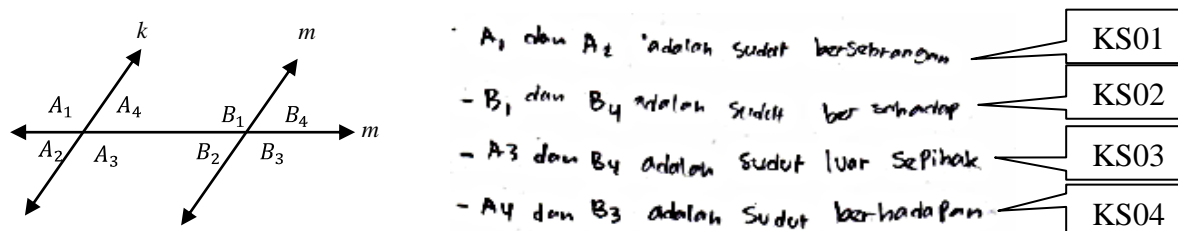 k
m
A₁ A₄ B₁ B₄ m
A₂ A₃ B₂ B₃
- A₁ dan A₂ adalah sudut bersebrangan KS01
- B₁ dan B₄ adalah sudut ber KS02
- A3 dan B4 adalah sudut luar sepihak KS03
- A4 dan B3 adalah sudut berhadapan KS04